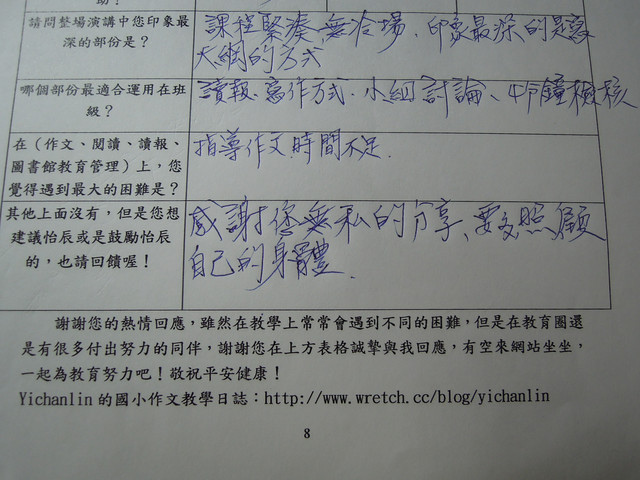 助？
請問整場演講中您印象最
深的部份是？
課程緊湊、無冷場、印象最深的是寫
大綱的方式
哪個部份最適合運用在班
級？
讀報、寫作方式、小組討論、4小鐘檢核
在（作文、閱讀、讀報、
圖書館教育管理）上，您
覺得遇到最大的困難是？
指導作文時間不足.
其他上面沒有，但是您想
建議怡辰或是鼓勵怡辰
的，也請回饋喔！
感謝您無私的分享、要多照顧
自己的身體.
謝謝您的熱情回應，雖然在教學上常常會遇到不同的困難，但是在教育圈還
是有很多付出努力的同伴，謝謝您在上方表格誠摯與我回應，有空來網站坐坐，
一起為教育努力吧！敬祝平安健康！
Yichanlin 的國小作文教學日誌：http://www.wretch.cc/blog/yichanlin
8